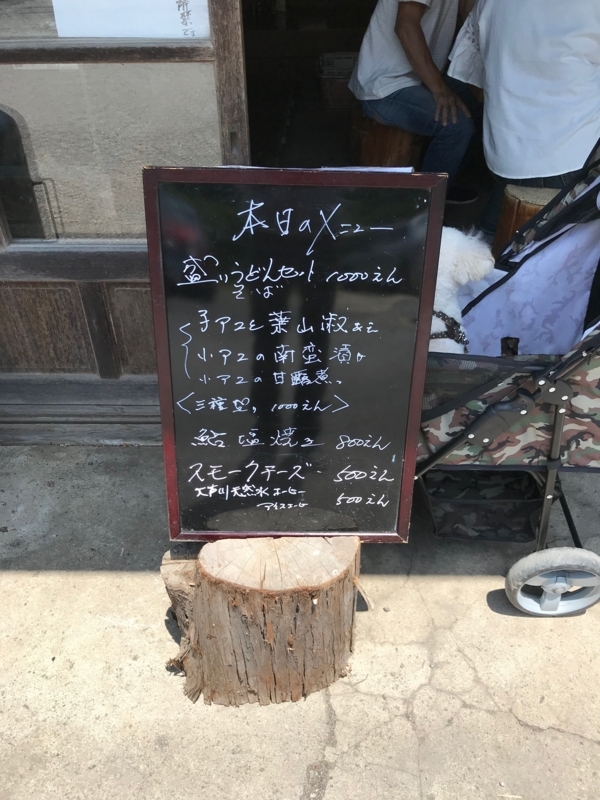 本日のメニュー
盛りうどんセット 1000えん
そば
子アユと葉山椒あえ
小アユの南蛮漬け
小アユの甘露煮。
〈三種盛り 1000えん〉
鮎塩焼き 800えん
スモークチーズ 500えん
天然水コーヒー 500えん
アイスコーヒー